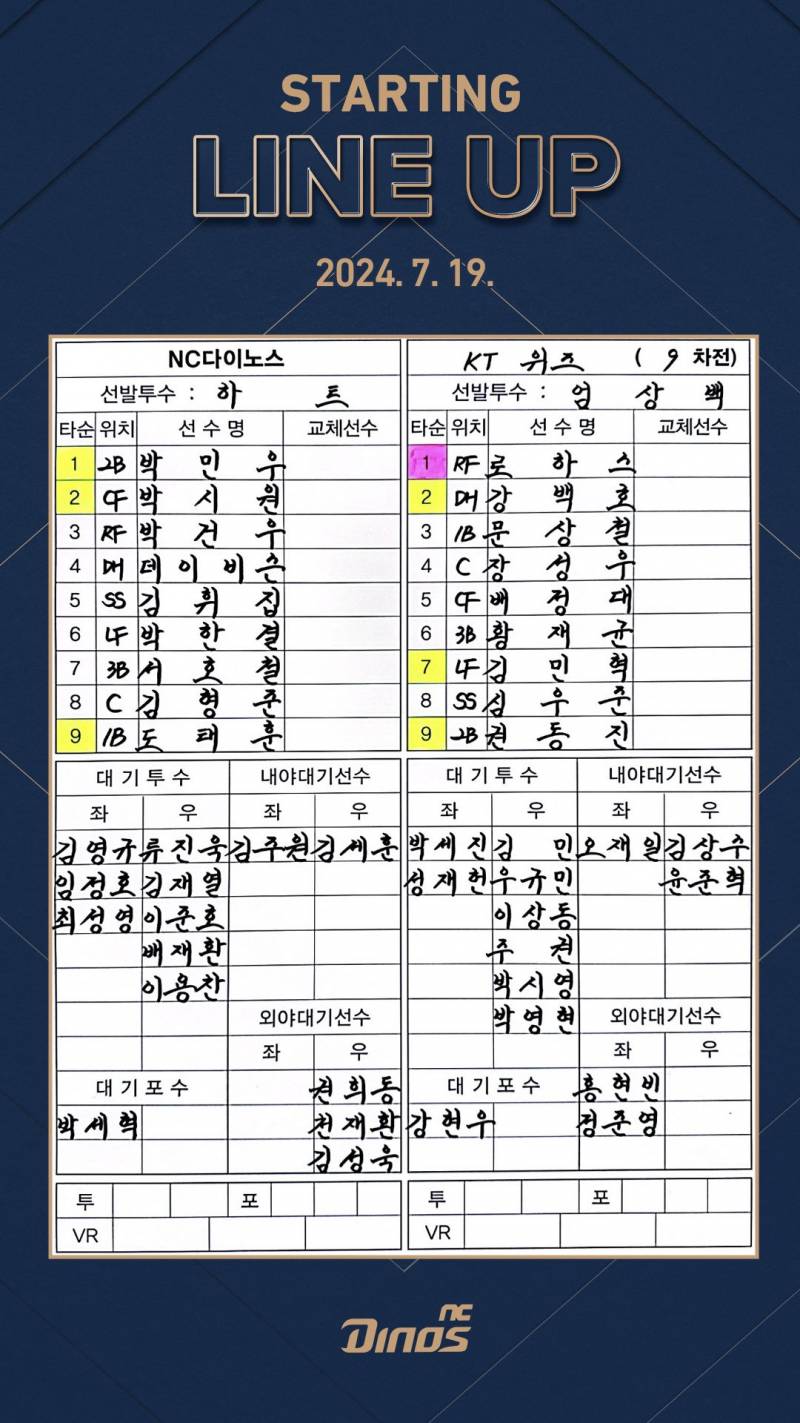 STARTING
LINE UP
2024. 7. 19.
NC다이노스
선발투수 : 하 트
타순 위치 선 수 명 교체선수
1 2B 박 민 우
2 CF 박 시 원
3 RF 박 건 우
4 DH 데 이 비 슨
5 SS 김 휘 집
6 LF 박 한 결
7 3B 서 호 철
8 C 김 형 준
9 1B 도 태 훈
대 기 투 수 내야대기선수
좌 우 좌 우
김영규 류진욱 김주원 김세훈
임정호 김재열
최성영 이준호
배재환
이용찬
외야대기선수
좌 우
대 기 포 수 권희동
박세혁 천재환
김성욱
투 포
VR
KT 위즈 ( 9 차전)
선발투수 : 엄 상 백
타순 위치 선 수 명 교체선수
1 RF 로 하 스
2 DH 강 백 호
3 1B 문 상 철
4 C 장 성 우
5 CF 배 정 대
6 3B 황 재 균
7 LF 김 민 혁
8 SS 심 우 준
9 2B 권 동 진
대 기 투 수 내야대기선수
좌 우 좌 우
박세진 김 민 오재일 김상수
성재헌 우규민 윤준혁
이상동
주 권
박시영
박영현 외야대기선수
좌 우
대 기 포 수 홍현빈
강현우 정준영
투 포
VR
NC
DINOS